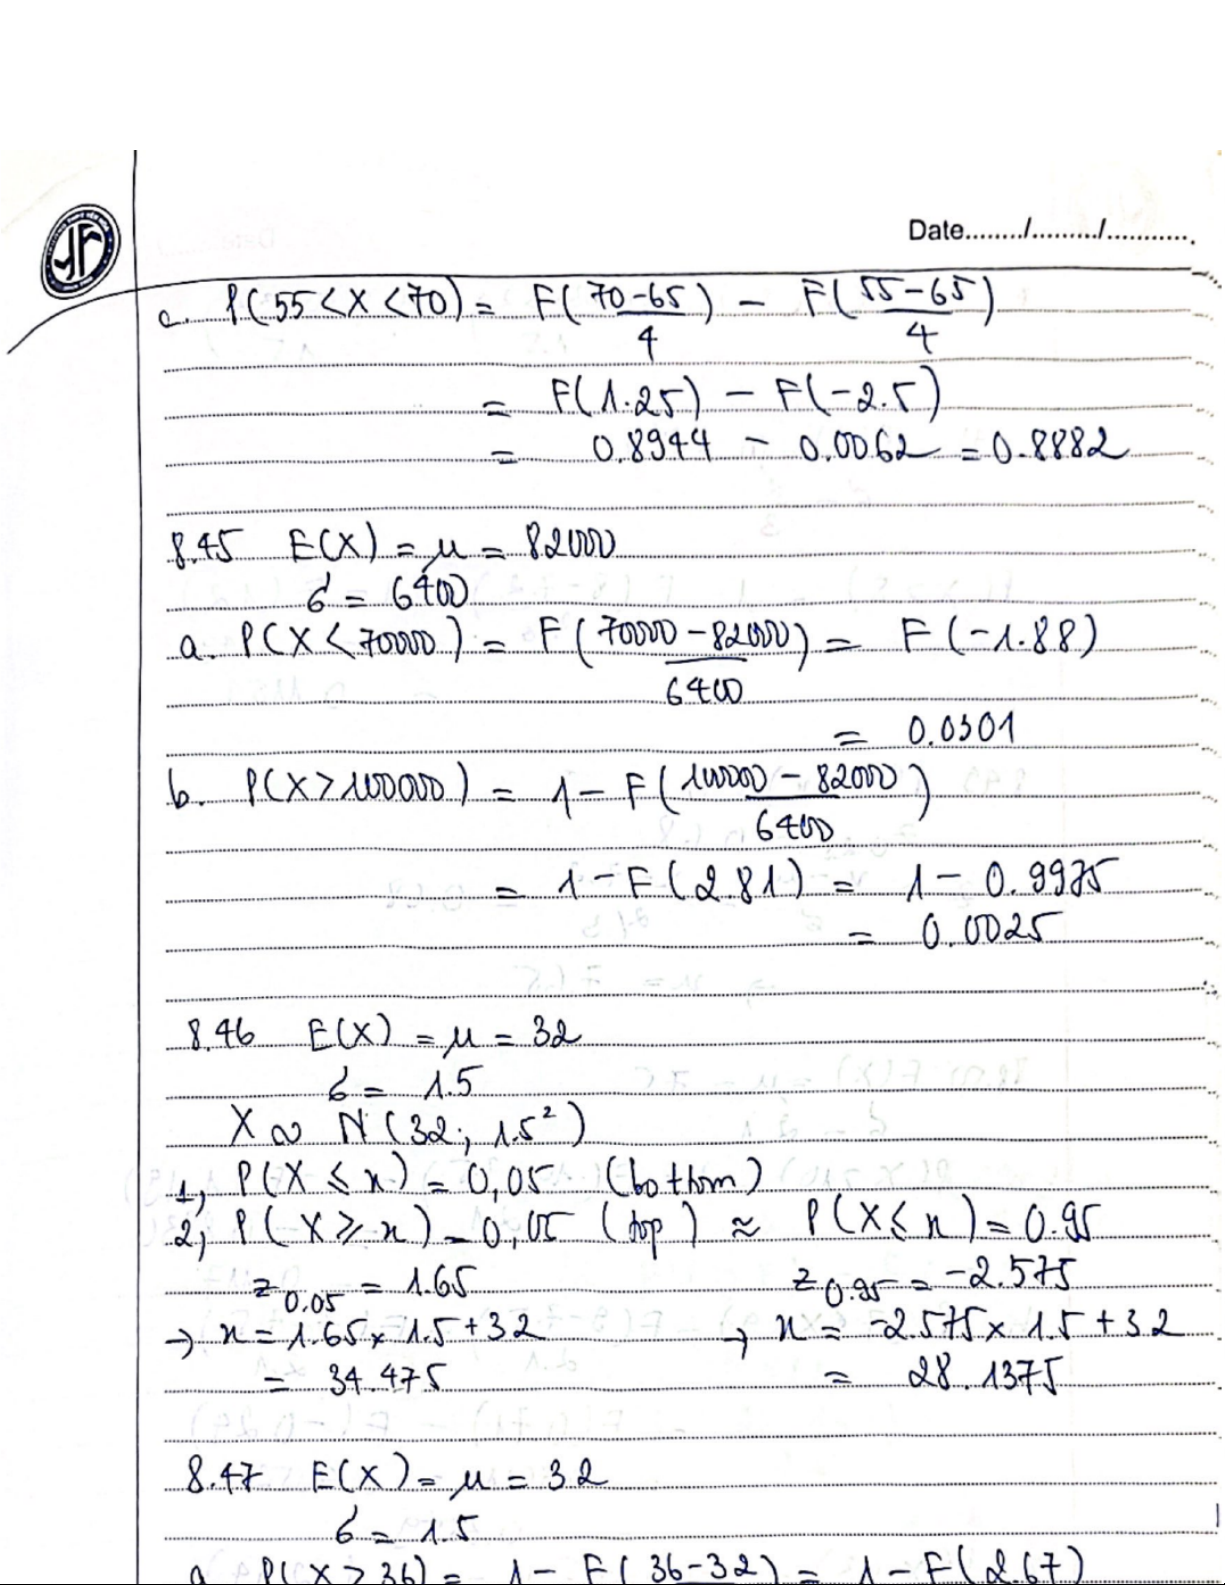 Date......../........./...........
c. P(55<X<70) = F(70-65/4) - F(55-65/4)
= F(1.25) - F(-2.5)
= 0.8944 - 0.0062 = 0.8882
8.45 E(X) = μ = 82000
б = 6400
a. P(X<70000) = F(70000-82000/6400) = F(-1.88)
= 0.0301
b. P(X>100000) = 1-F(100000-82000/6400)
= 1-F(2.81) = 1-0.9975
= 0.0025
8.46 E(X) = μ = 32
б = 1.5
X ∼ N(32; 1.5²)
1, P(X ≤ x) = 0,05 (bottom)
2, P(X ≥ x) = 0,05 (top) ≈ P(X ≤ x) = 0.95
z0.05 = 1.65 z0.95 = -2.575
→ x = 1.65 x 1.5 + 32 → x = -2.575 x 1.5 + 32
= 34.475 = 28.1375
8.47 E(X) = μ = 32
б = 1.5
a P(X > 36) = 1 - F(36-32) = 1-F(2.67)